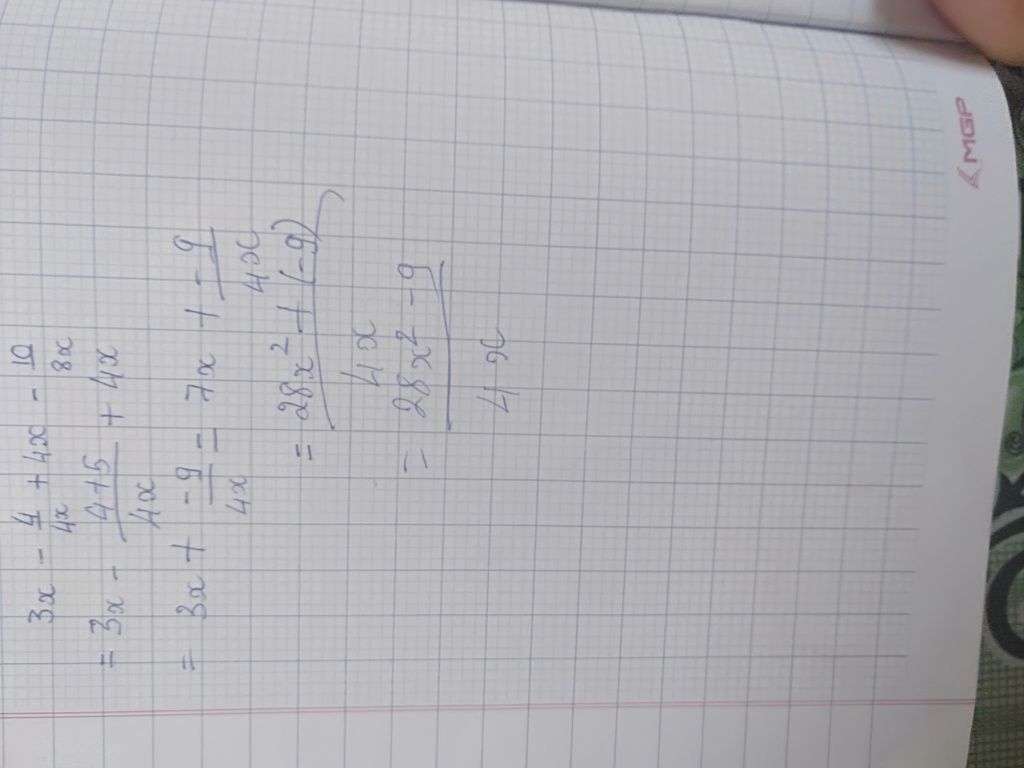 3x - 4/4x + 4x - 10/8x
= 3x - 4+5/4x + 4x
= 3x + -9/4x = 7x + -9/4x
= 28x² + (-9)/4x
= 28x² - 9/4x
MGP